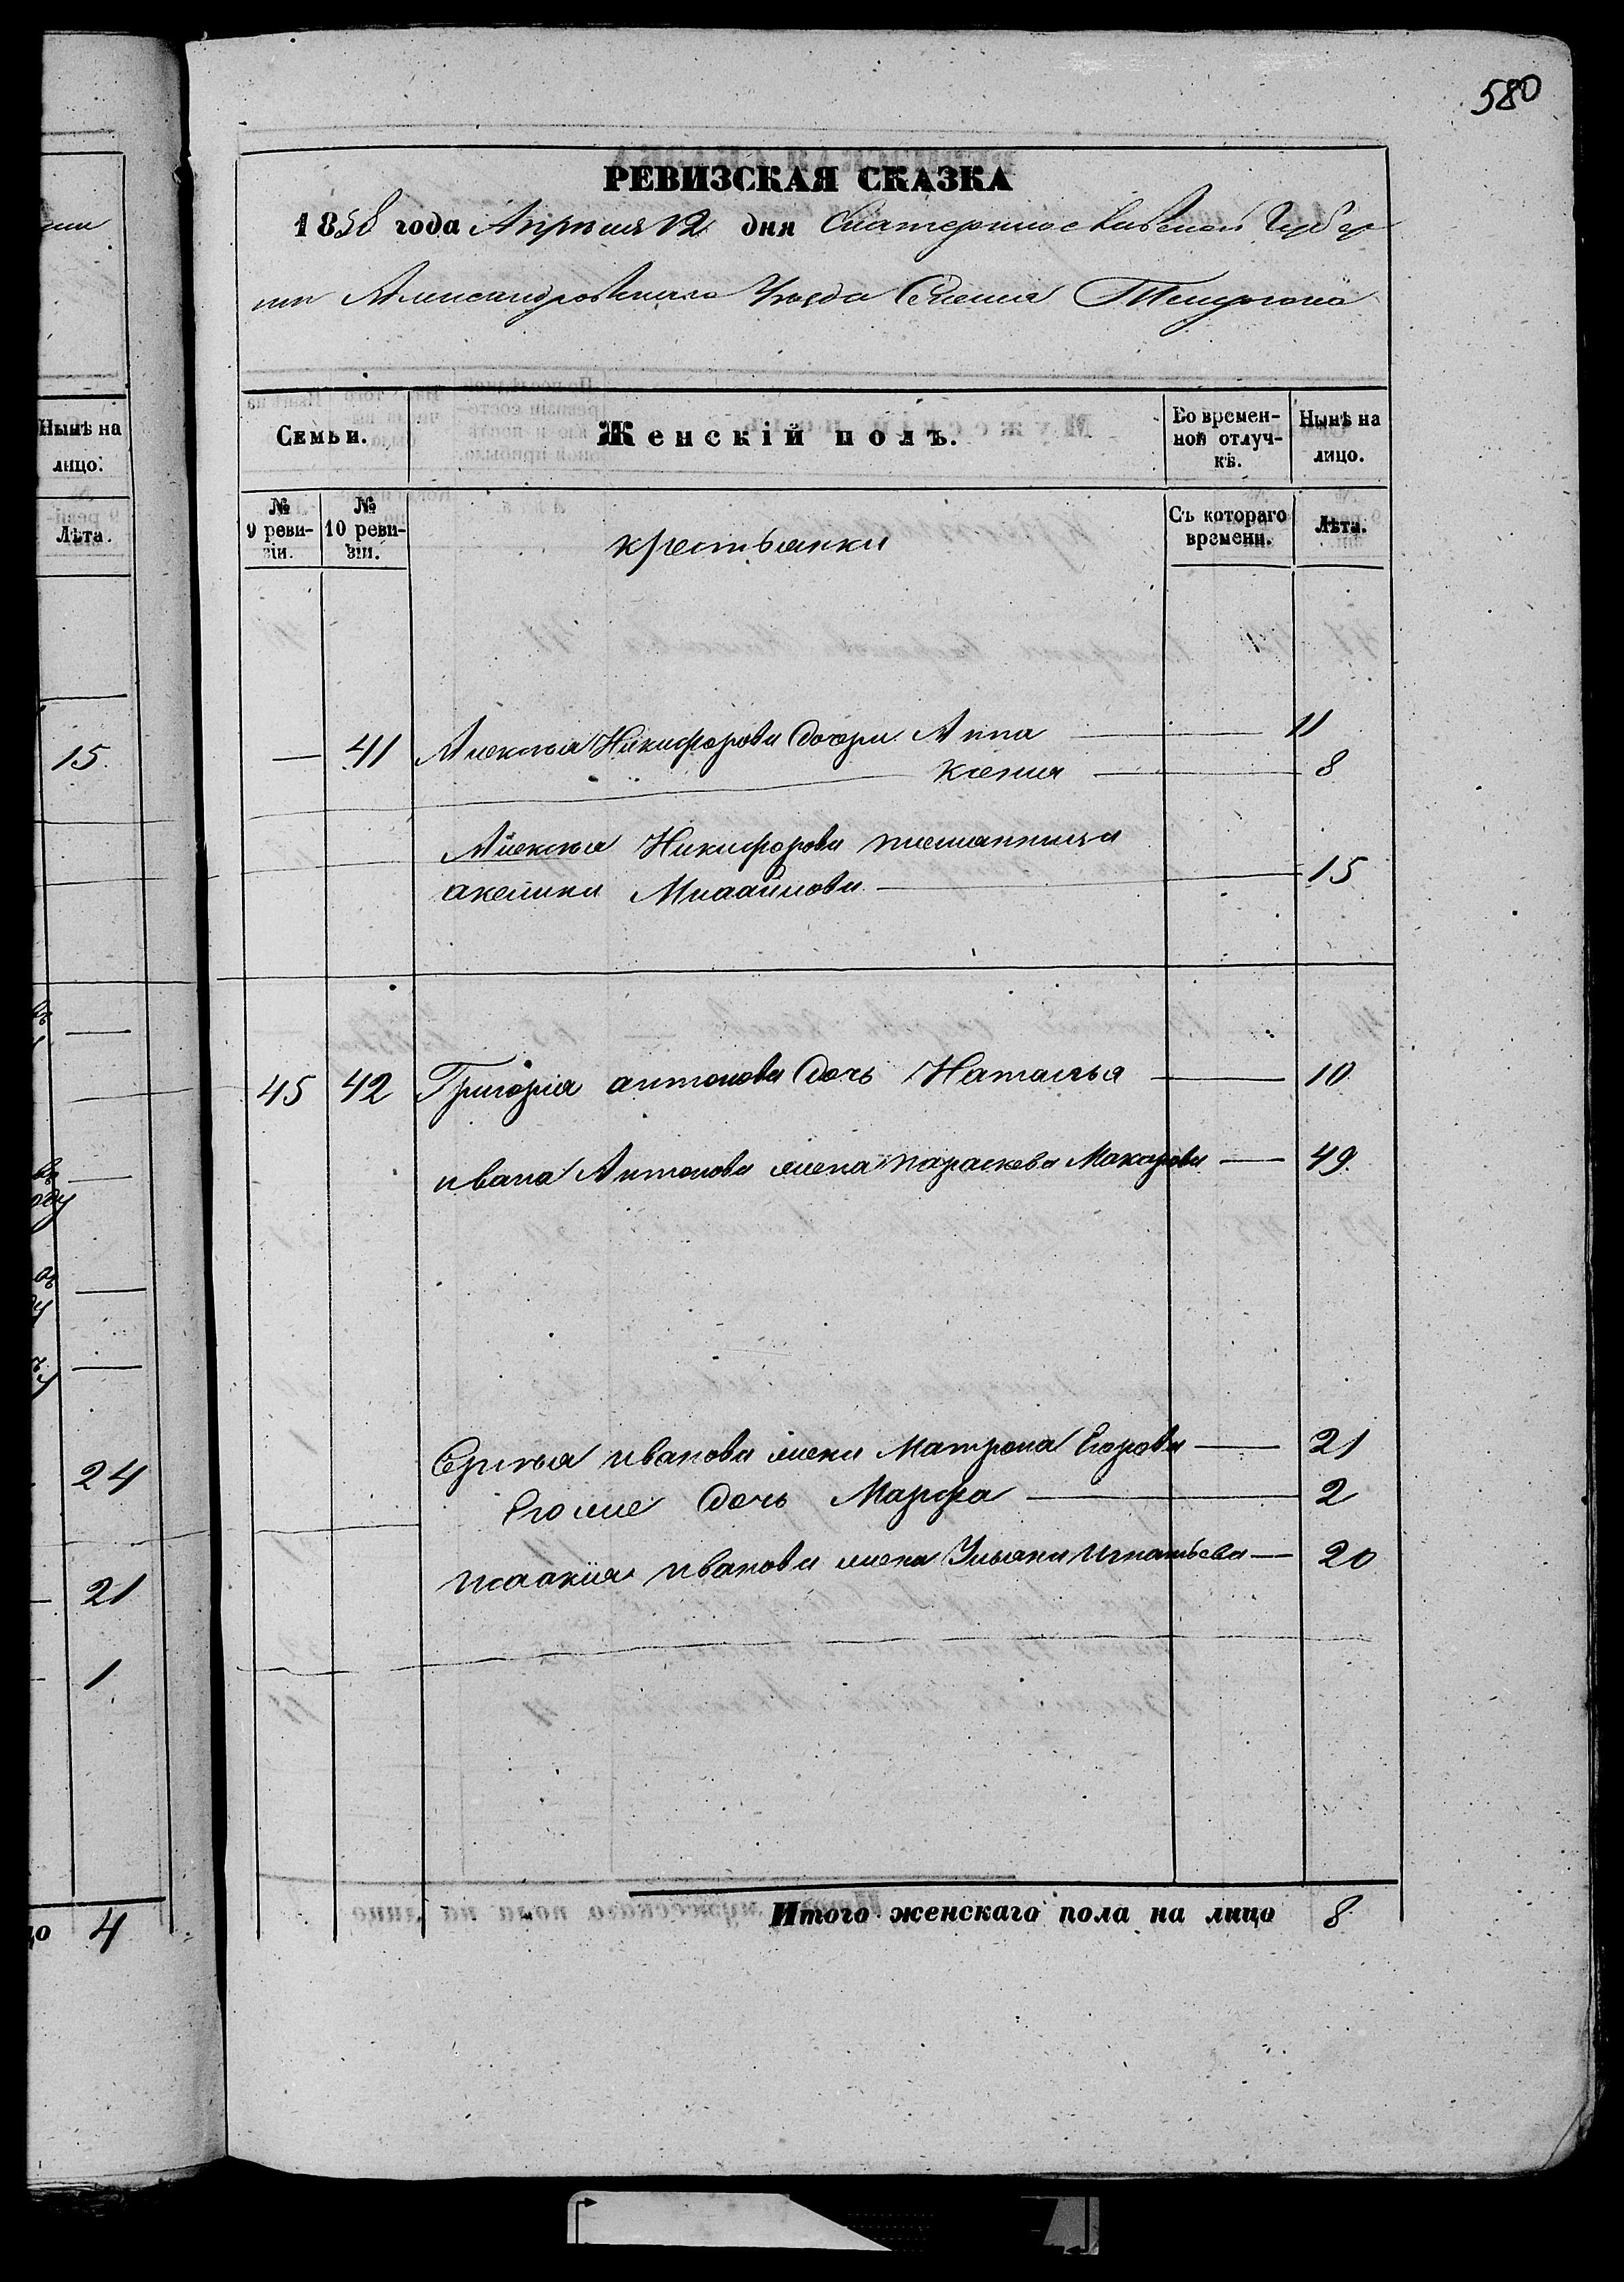 580
РЕВИЗСКАЯ СКАЗКА
1858 года Апреля 12 дня Екатеринославской Губер
нии Александровского Уезда Селения
Семьи. Женскій полъ. Во времен-ной отлуч-кѣ. Нынѣ на лицо.
№ 9 реви-зіи. № 10 реви-зіи. крестьянки Съ котораго времени. Лѣта.
— 41 Алексея Никифорова дочери Анна — 11
Ксения — 8
Алексея Никифорова племянница
акелина Михайлова — 15
45 42 Григорія антонова дочь Наталья — 10
ивана Антонова жена параскева Макарова — 49
Сергея иванова жена Матрона Егорова — 21
Его же дочь Марфа — 2
исаакія иванова жена Ульяна игнатьева — 20
Итого женскаго пола на лицо 8
Нынѣ на
лицо.
Лѣта.
15
24
21
1
4